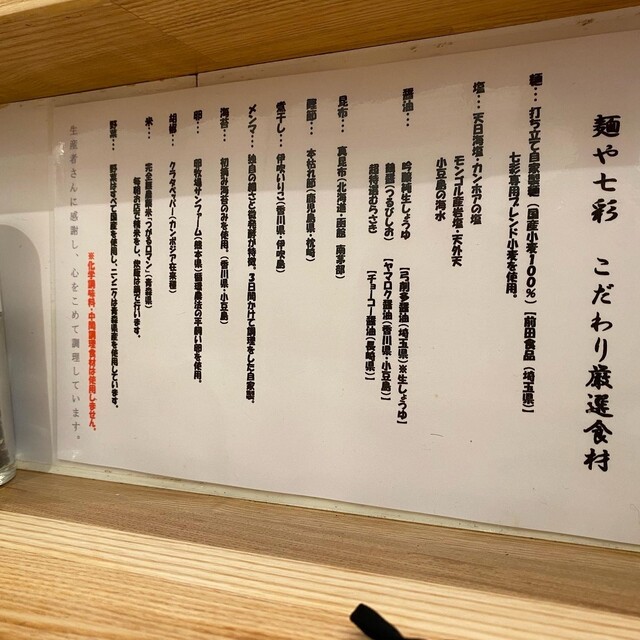 麺や七彩　こだわり厳選食材
麺… 打ち立て自家製麺（国産小麦100％）【前田食品（埼玉県）】
七彩専用ブレンド小麦を使用。
塩… 天日海塩・カンホアの塩
モンゴル産岩塩・天外天
小豆島の海水
醤油… 吟醸純生しょうゆ【弓削多醤油（埼玉県）※生しょうゆ】
鶴醤（つるびしお）【ヤマロク醤油（香川県・小豆島）】
超特選むらさき【チョーコー醤油（長崎県）】
昆布… 真昆布（北海道・函館 南茅部）
節… 本枯れ節（鹿児島県・枕崎）
煮干し… 伊吹いりこ（香川県・伊吹島）
メンマ… 独自の細さと発酵感が特徴。3日間かけて調理をした自家製。
海苔… 初摘み海苔のみを使用。（香川県・小豆島）
卵… 那須ファーム（熊本県）循環農法の平飼い卵を使用。
胡椒… クラタペッパー（カンボジア在来種）
米… 完全無農薬米「つがるロマン」（青森県）
毎朝お店で精米をし、炊飯は釜で行います。
野菜… 野菜はすべて国産を使用し、ニンニクは青森県産を使用しています。
※化学調味料・中間調理食材は使用しません。
生産者さんに感謝し、心をこめて調理しています。